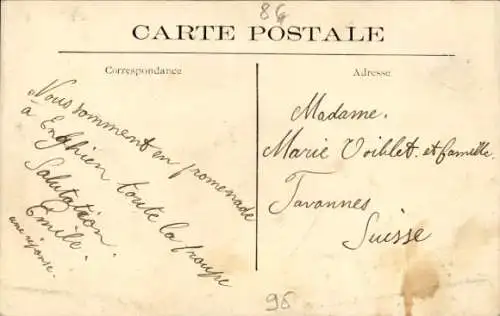 86
CARTE POSTALE
Correspondance
Vous somment en promenade
à Enghien toute la troupe
Salutation.
Emile.
une réponse.
Adresse
Madame.
Marie Voiblet et famille
Tavannes
Suisse
96